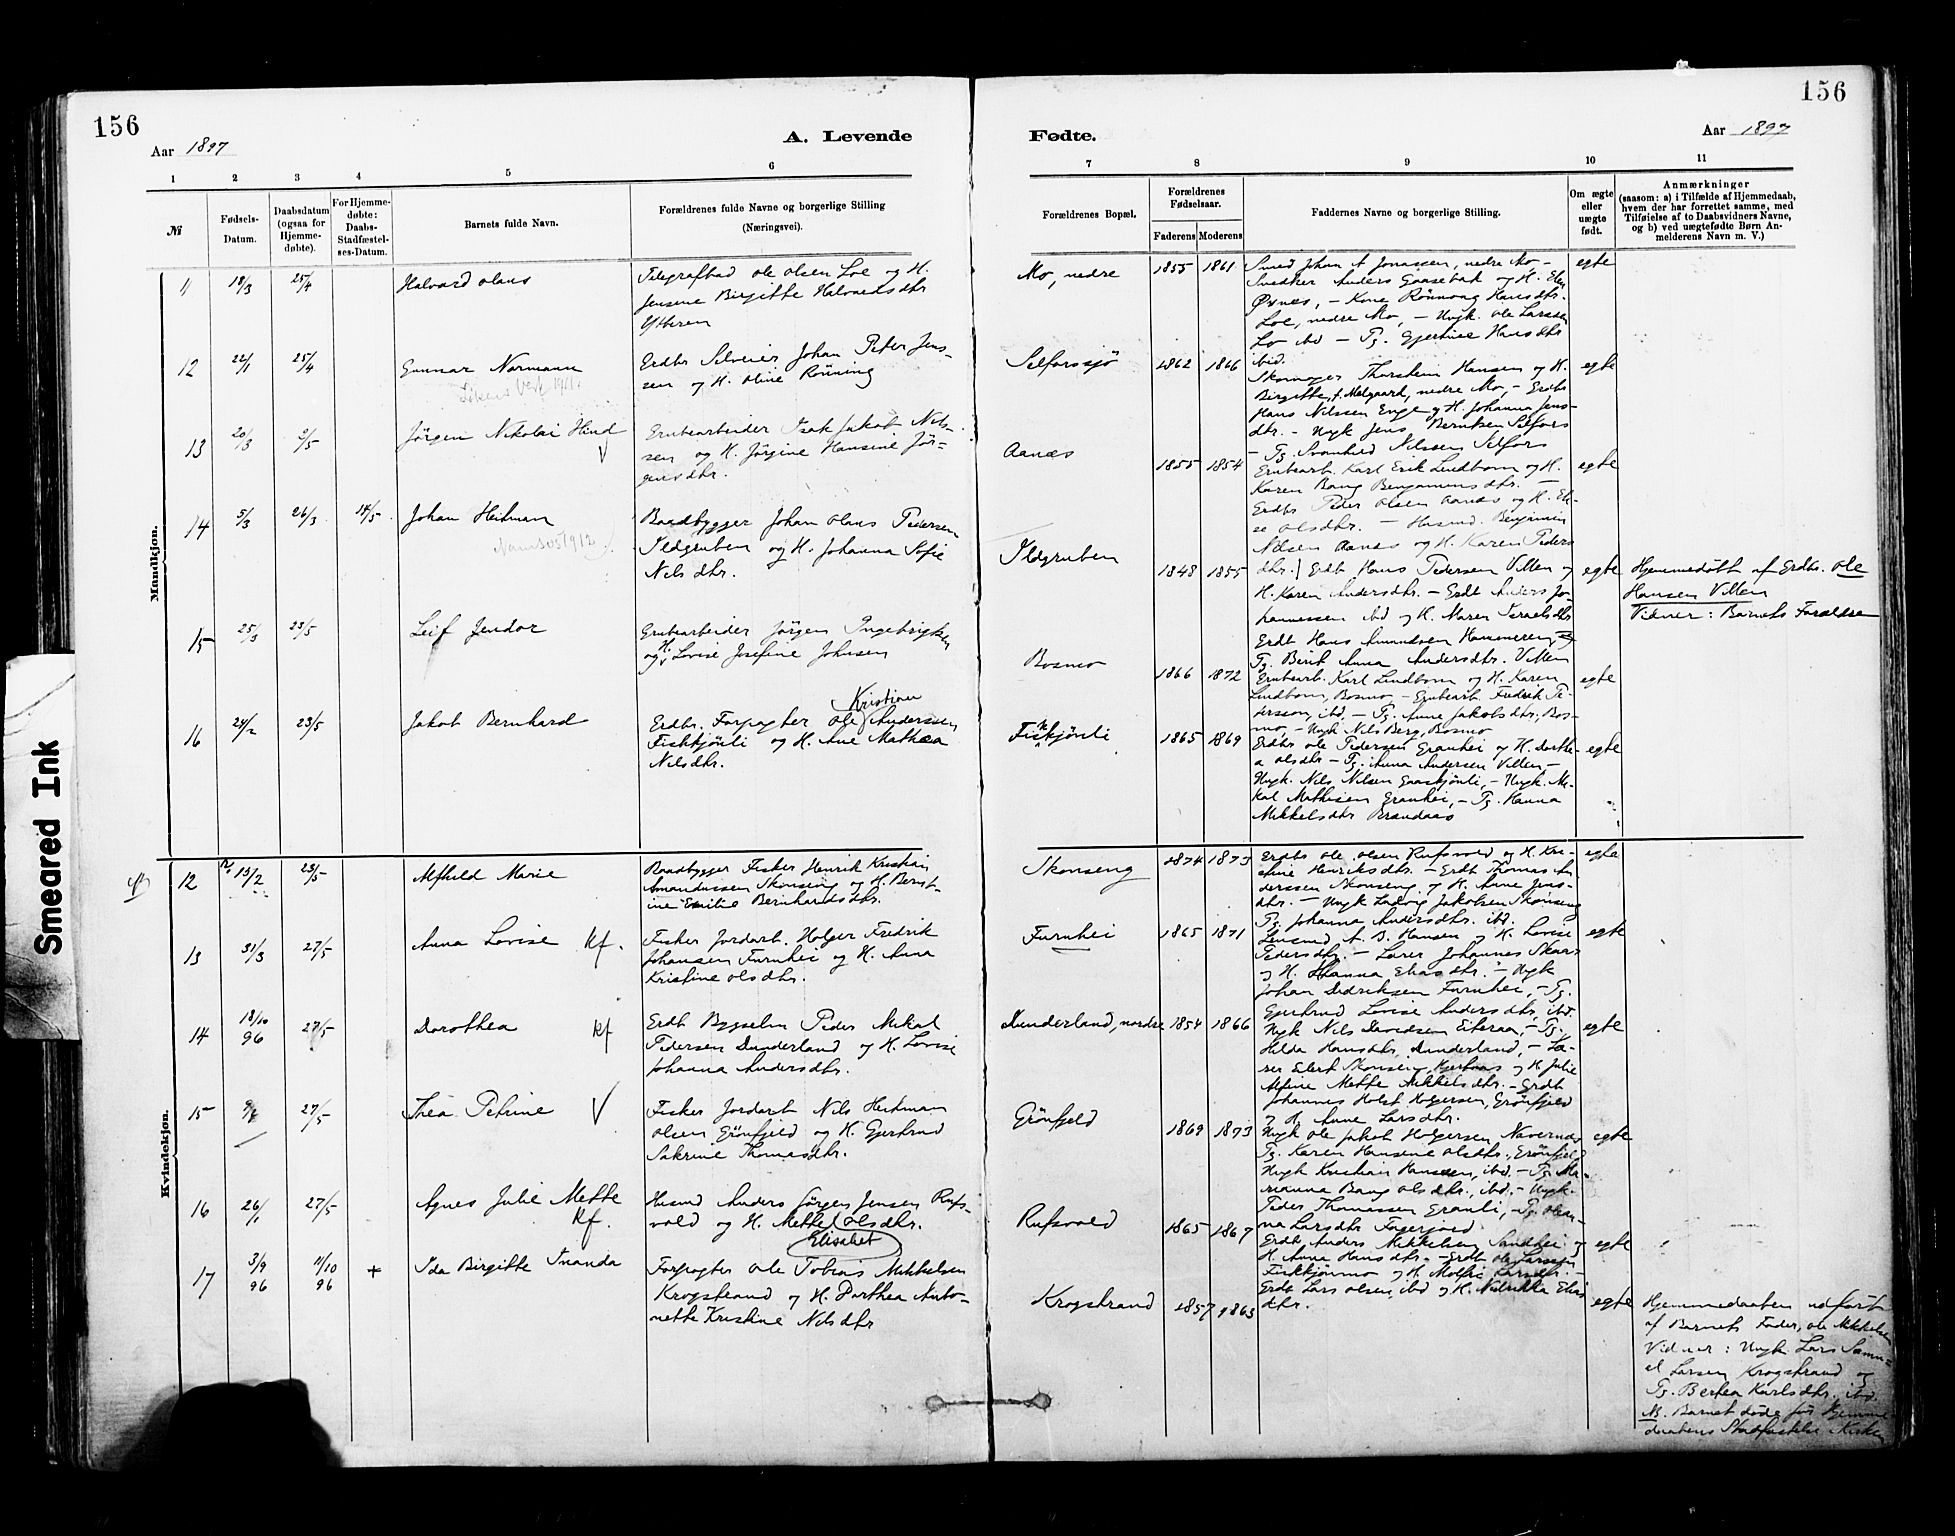 156
156
A. Levende
Fødte.
Aar 1897
Aar 1897
1 2 3 4 5 6
7 8 9 10 11
№
Fødsels-
Datum.
Daabsdatum
(ogsaa for
Hjemme-
døbte).
For Hjemme-
døbte:
Daabs-
Stadfæstel-
ses-Datum.
Barnets fulde Navn.
Forældrenes fulde Navne og borgerlige Stilling
(Næringsvei).
Forældrenes Bopæl.
Forældrenes
Fødselsaar.
Faderens Moderens
Faddernes Navne og borgerlige Stilling.
Om ægte
eller
uægte
født.
Anmærkninger
(saasom: a) i Tilfælde af Hjemmedaab,
hvem der har forrettet samme, med
Tilføielse af to Daabsvidners Navne,
og b) ved uægtefødte Børn An-
melderens Navn m. V.)
Mandkjøn.
11 18/3 25/4 Halvard Olaus
Telegrafbud Ole Olsen Loe og H.
Jensine Birgitte Halvardsdtr
Ytteren
Mo, nedre 1855 1861 egte
Smed Johan A Jonassen, nedre Mo –
Snedker Anders Gaasebak og H. Elen
Øvnes, – Kone Rønnaug Hansdtr.
Loe, nedre Mo, – Ungk. Ole Larssen
Lo ibd – Pg. Gjertine Hansdtr
ibid.
12 22/1 25/4 Gunnar Normann
Erdbr Selveier Johan Peter Jens-
sen og H. Oline Rönning
Selforssjø 1862 1866 egte
Skomager Thorstein Hansen og H.
Birgitte, f. Melgaard, nedre Mo, – Erdbr
Hans Nilssen Enge og H. Johanna Jens-
dtr. – Ungk Jens Berntsen Selfors
– Pg. Svanhild Nilssen Selfors
13 20/3 9/5 Jörgen Nikolai Hind V
Grubearbeider Isak Jakob Nils-
sen og H. Jörgine Hansine Jör-
gensdtr.
Aanæs 1855 1854 egte
Grubearb. Karl Erik Lindbom og H.
Karen Bang Benjaminsdtr. –
Erdbr Peder Olsen Aanæs og H. El-
se Olsdtr. – Husmd. Benjamin
Nilsen Aanæs og H. Karen Peders
dtr.
14 5/3 26/3 14/5 Johan Heitman
Namsos 1912
Baadbygger Johan Olaus Pedersen
Ildgruben og H. Johanna Sofie
Nilsdtr.
Ildgruben 1848 1855 egte
Erdb Hans Pedersen Villen og
H. Karen Andersdtr. – Erdb Anders Jo-
hannessen ibd og H. Maren Israelsdtr
Erdb Hans Amundsen Hammeren og
Pg. Berit Anna Andersdtr. Villen
Hjemmedöbt af Erdbr. Ole
Hansen Villen
Vidner: Barnets Forældre
15 25/3 23/5 Leif Jendor
Grubearbeider Jörgen Ingebrigtsen
og H. Lovise Josefine Johnsen
Bosmo 1866 1872 egte
Grubearb. Karl Lindbom og H. Karen
Lindbom, Bosmo, – Grubearb. Fredrik Pe-
dersson, ibd. – Pg. Anne Jakobsdtr., Bos-
mo, – Ungk Nils Berg, Bosmo
16 24/2 23/5 Jakob Bernhard
Kristian
Erdbr. Forpagter Ole Anderssen
Fiskkjönli og H. Ane Mathea
Nilsdtr.
Fiskkjönli 1865 1869 egte
Erdbr Ole Pedersen Granhei og H. Dorthe-
a Olsdtr – Pg. Anna Andersen Villen –
Ungk. Nils Nilsen Gaaskjönli, – Ungk. Mi-
kal Mathisen Granhei, – Pg. Hanna
Mikkelsdtr Brandaas
Kvindekjøn.
12 13/2 23/5 Alfhild Marie
Baadbygger Fisker Henrik Kristian
Amandussen Skonseng og H. Bernt-
ine Emilie Bernhardsdtr.
Skonseng 1874 1873 egte
Erdbr Ole Olsen Rufsvold og H. Kri-
stine Henriksdtr. – Erdb Thomas An
derssen Skonseng og H. Anne Jens-
dtr. – Ungk Ludvig Jakobsen Skonseng
Pg. Johanna Andersdtr. ibd.
13 31/3 27/5 Anna Lovise kf.
Fisker Jordarb. Holger Fredrik
Johansen Furuhei og H. Anna
Kristine Olsdtr.
Furuhei 1865 1871 egte
Lensmd A. B. Hansen og H. Lovise
Pedersdtr. – Lærer Johannes Skaar
og H. Hanna Eliasdtr. – Ungk
Johan Didriksen Furuhei, – Pg.
Gjertrud Lovise Andersdtr, ibd.
14 18/10 96 27/5 Dorothea kf
Erdb Bygselm Peder Mikal
Pedersen Dunderland og H. Lovise
Johanna Andersdtr.
Dunderland, nordre 1854 1866 egte
Ungk Nils Davidsen Eiteraa, – Pg.
Hilda Hansdtr, Dunderland, – Læ-
rer Elert Skonseng og H Julie
Alfine Mette Mikkelsdtr. – Erdb
Johannes Holst Holgersen, Grönfjeld
og H. Anne Larsdtr.
15 27/5 Thea Petrine V
Fisker Jordarb Nils Heitman
Olsen Grönfjeld og H. Gjertrud
Sakrine Thomasdtr.
Grönfjeld 1869 1873 egte
Ungk Ole Jakob Holgersen, Navernes
Pg. Karen Hansine Olsdtr., Grönfjeld
Ungk Kristian Hanssen, ibd. – Pg. Ma-
rianna Bang Olsdtr., ibd. – Ungk.
Peder Thomassen Granli, – Pg. Olean-
na Larsdtr Fagerjord
16 26/1 27/5 Agnes Julie Mette kf.
Husmd Anders Jörgen Jensen Rufs-
vold og H. Mette Olsdtr.
Elisabet
Rufsvold 1865 1867 egte
Erdb Anders Mikkelsen Sandhei og
H. Anna Hansdtr. – Erdb Ole Larssen
Fiskkjönmo og H. Molfri Larsdtr. –
Erdb Lars Olsen, ibd og H. Elias
dtr.
17 3/9 96 11/10 96 + Ida Birgitte Inanda
Forpagter Ole Tobias Mikkelsen
Krogstrand og H. Dorthea Anto-
nette Kristine Nilsdtr
Krogstrand 1857 1863 egte
Hjemmedaaben udfört
af Barnets Fader, Ole Mikkelsen
Vidner: Ungk. Lars Samu-
el Larsen Krogstrand og
Pg. Bertea Karlsdtr. ibd.
NB. Barnet döde för Hjemme-
daabens Stadfæstelse i Kirken
Smeared Ink